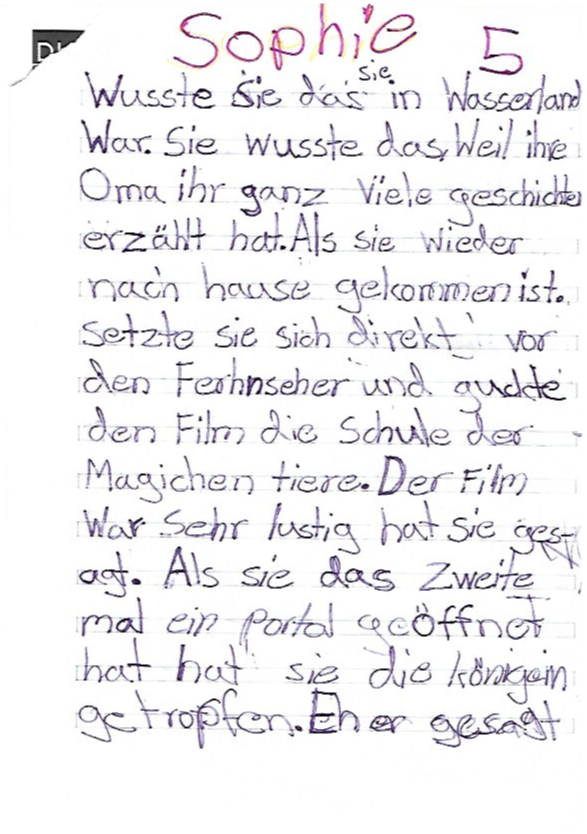 Sophie 5
sie
Wusste Sie das in Wasserland
War. Sie wusste das, Weil ihre
Oma ihr ganz Viele geschichten
erzählt hat. Als sie wieder
nach hause gekommen ist.
Setzte sie sich direkt vor
den Ferhnseher und guckte
den Film die Schule der
Magichen tiere. Der Film
War Sehr lustig hat Sie ges-
agt. Als sie das Zweite
mal ein Portal geöffnet
hat hat sie die königein
getropfen. Eher gesagt